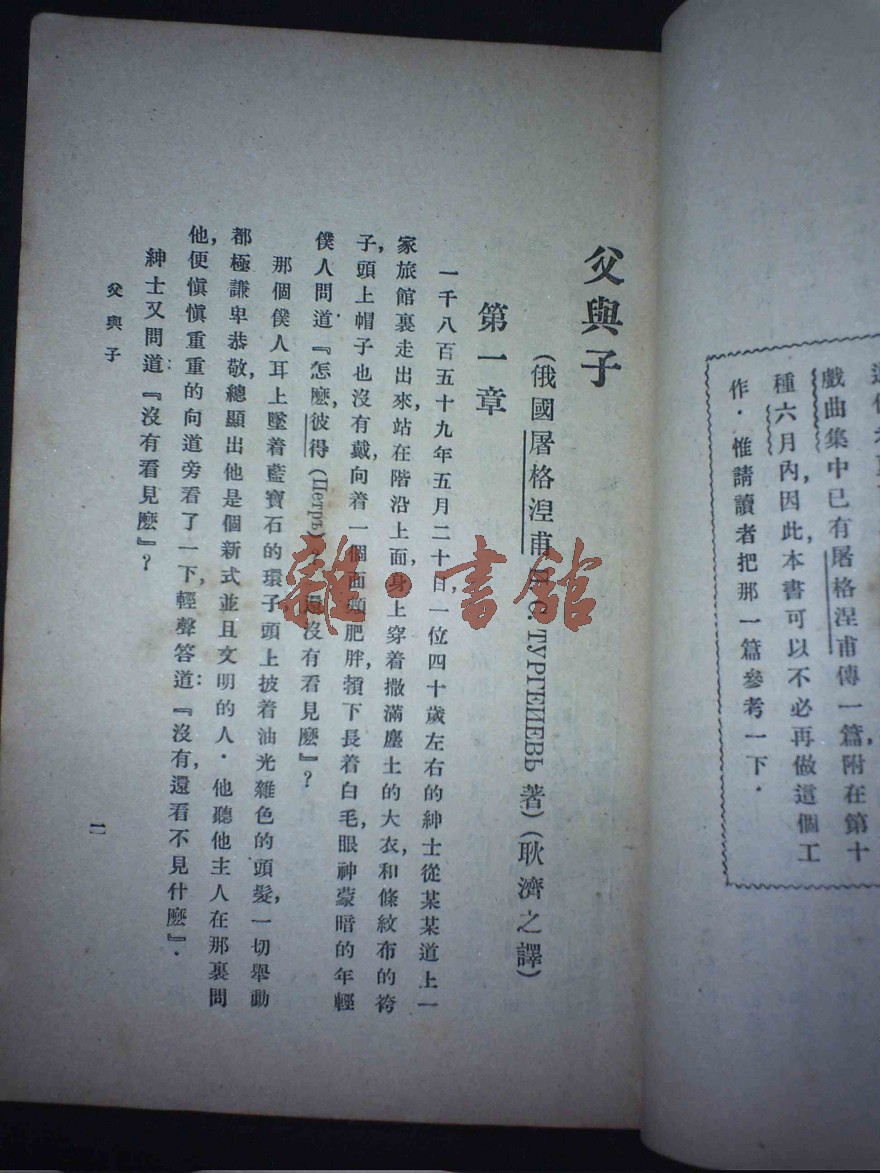 戲曲集中已有屠格涅甫傳一篇,附在第十
種六月內,因此,本書可以不必再做這個工
作.惟請讀者把那一篇參考一下.
父與子
(俄國屠格涅甫 С. ТУРГЕИЕВЬ 著)(耿濟之譯)
第一章
一千八百五十九年五月二十日,一位四十歲左右的紳士從某某道上一
家旅館裏走出來,站在階沿上面,身上穿着撒滿塵土的大衣,和條紋布的袴
子,頭上帽子也沒有戴,向着一個面頰肥胖,頷下長着白毛,眼神蒙暗的年輕
僕人問道『怎麽,彼得(Петръ)還沒有看見麽』?
那個僕人耳上墜着藍寶石的環子頭上披着油光雜色的頭髮,一切舉動
都極謙卑恭敬,總顯出他是個新式並且文明的人.他聽他主人在那裏問
他,便愼愼重重的向道旁看了一下,輕聲答道:『沒有,還看不見什麽』.
紳士又問道:『沒有看見麽』?
父與子
一
雜·書館